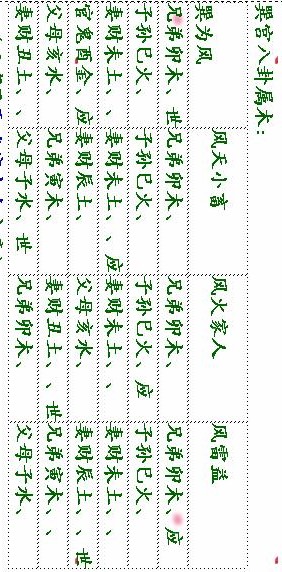 巽宫八卦属木：
巽为风 风天小畜 风火家人 风雷益
兄弟卯木、世 兄弟卯木、 兄弟卯木、 兄弟卯木、应
子孙巳火、 子孙巳火、 子孙巳火、应 子孙巳火、
妻财未土、、 妻财未土、、应 妻财未土、、 妻财未土、、
官鬼酉金、应 妻财辰土、 父母亥水、 妻财辰土、、世
父母亥水、 兄弟寅木、 妻财丑土、、世 兄弟寅木、、
妻财丑土、、 父母子水、世 兄弟卯木、 父母子水、